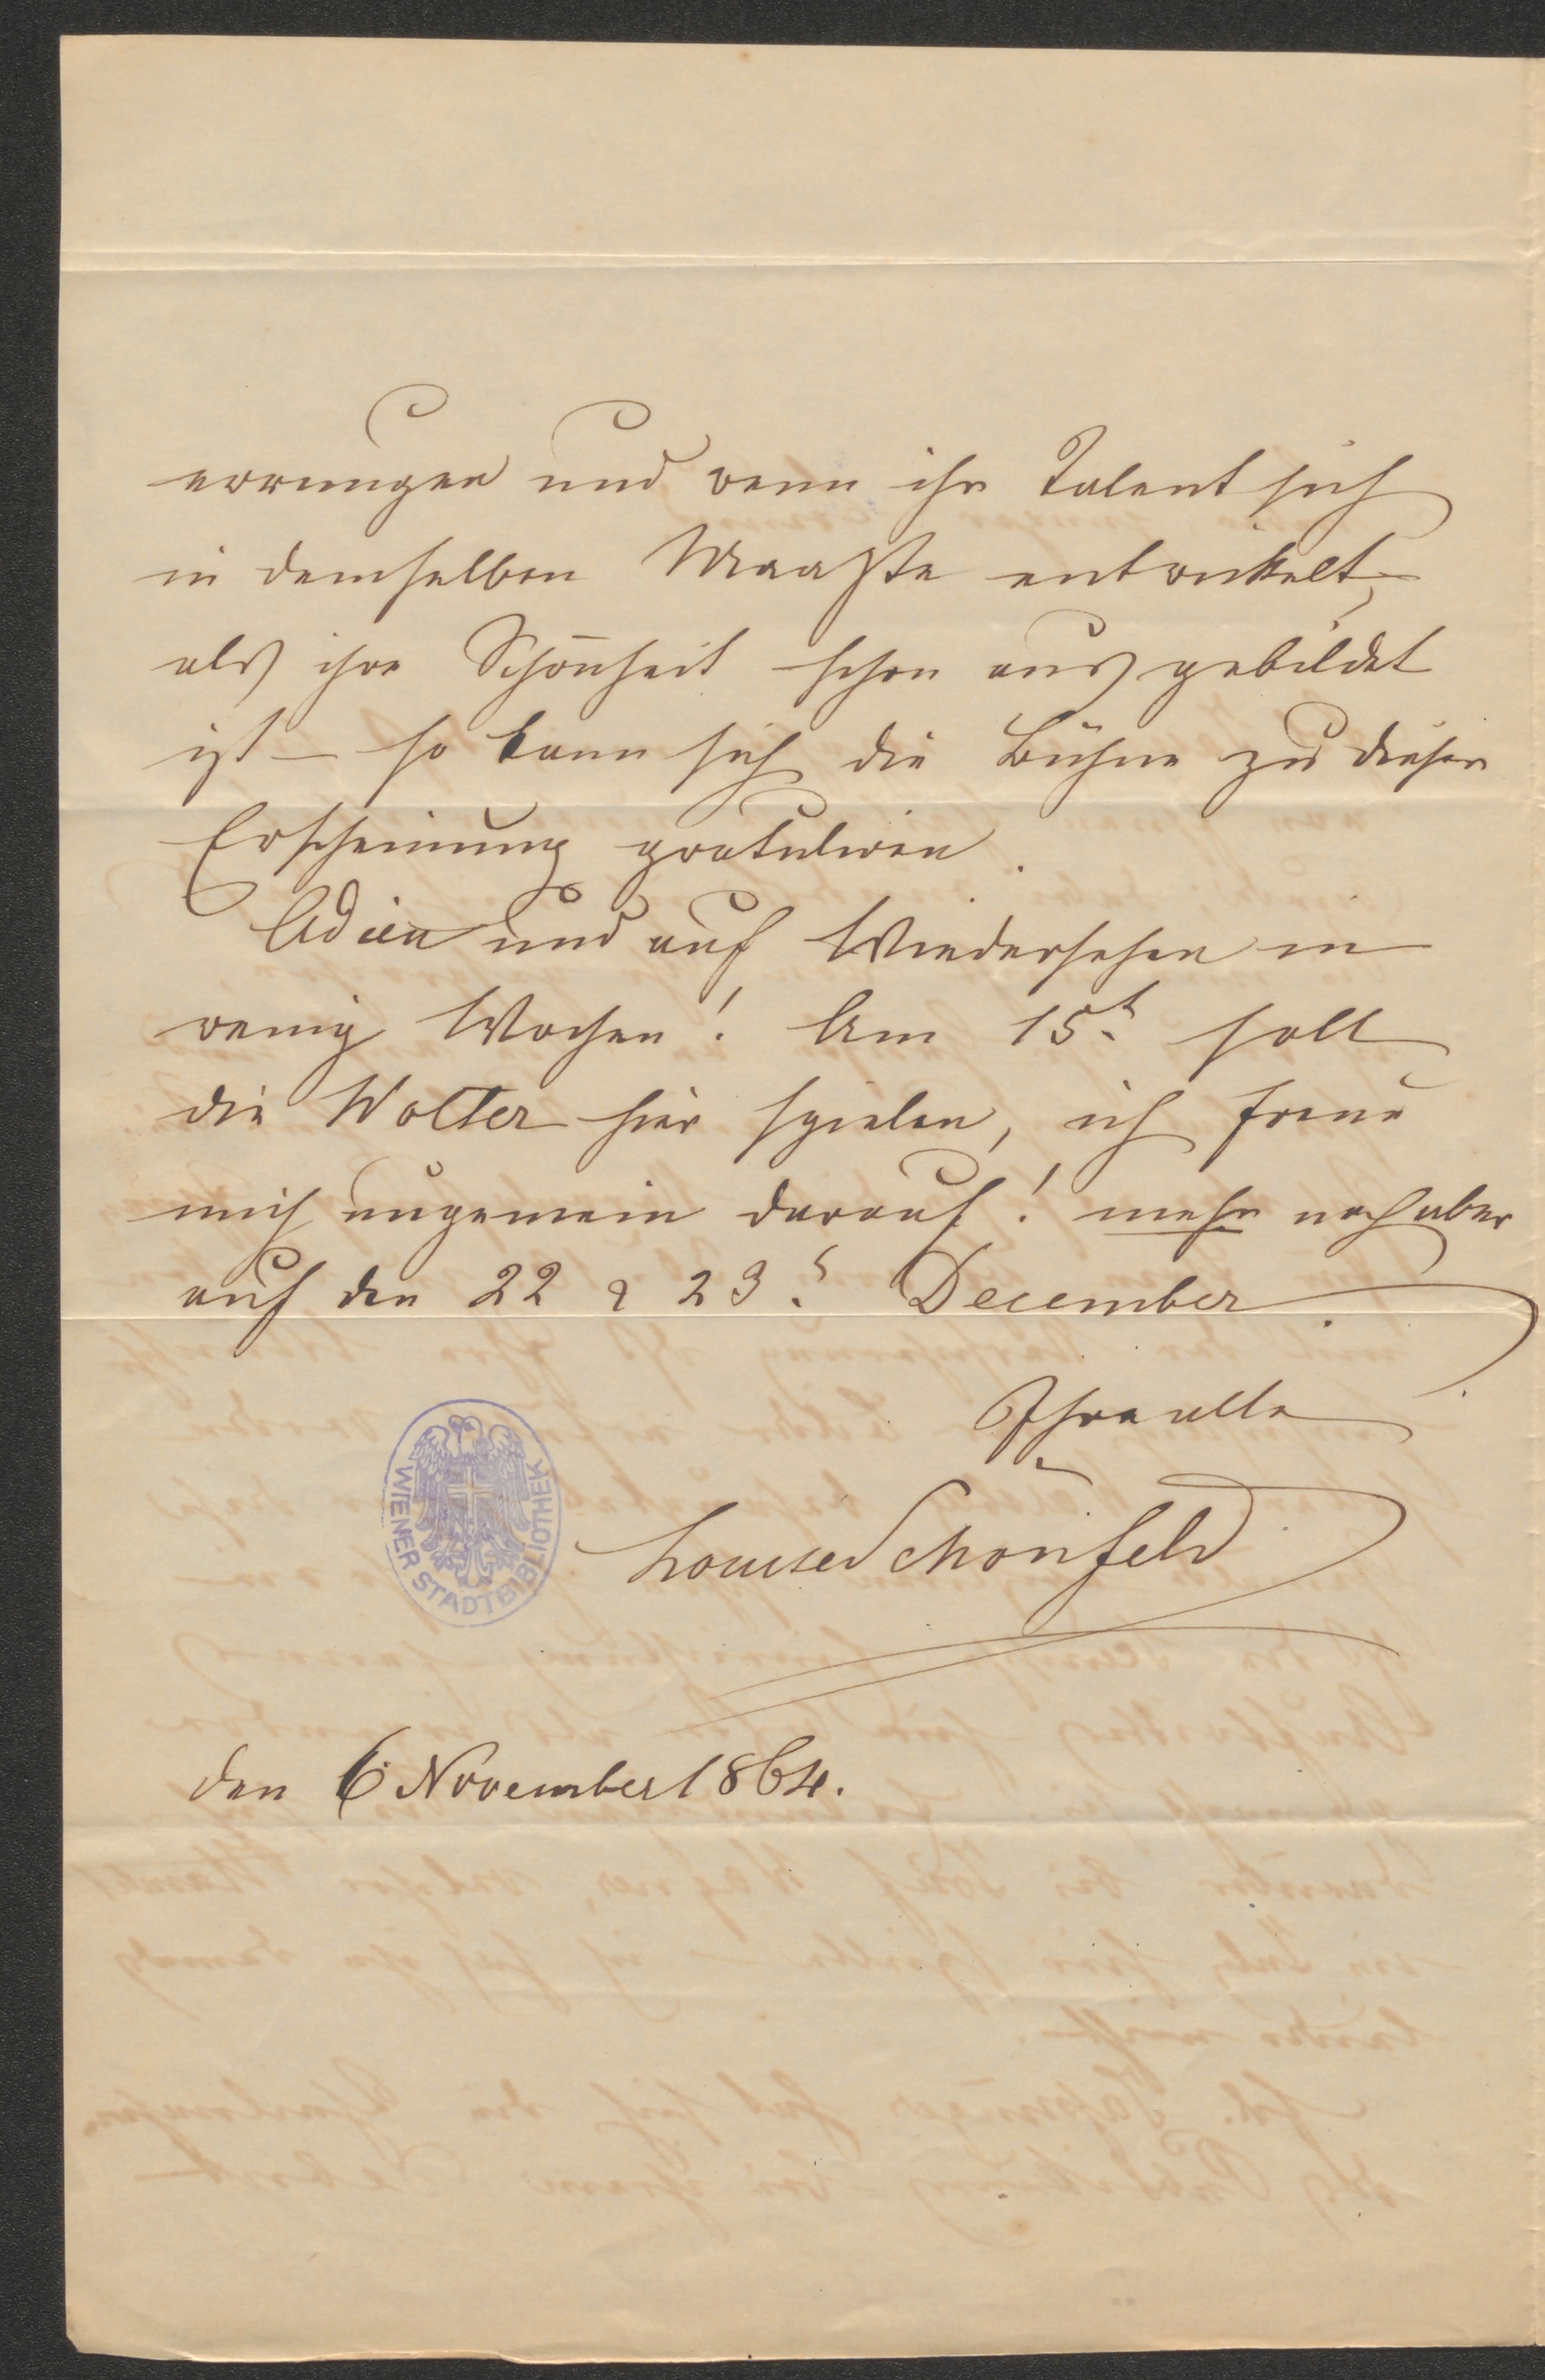 errungen und wenn ihr Talent sich
in demselben Maaße entwickelt,
als ihre Schönheit schon ausgebildet
ist – so kann sich die Bühne zu dieser
Erscheinung gratuliren.
Adieu und auf Wiedersehen in
wenig Wochen! Am 15t. soll
die Wolter hier spielen, ich freue
mich ungemein darauf! mehr noch aber
auf den 22 & 23. December.
Ihre alte
Louise Schönfeld
WIENER STADTBIBLIOTHEK
den 6 November 1864.